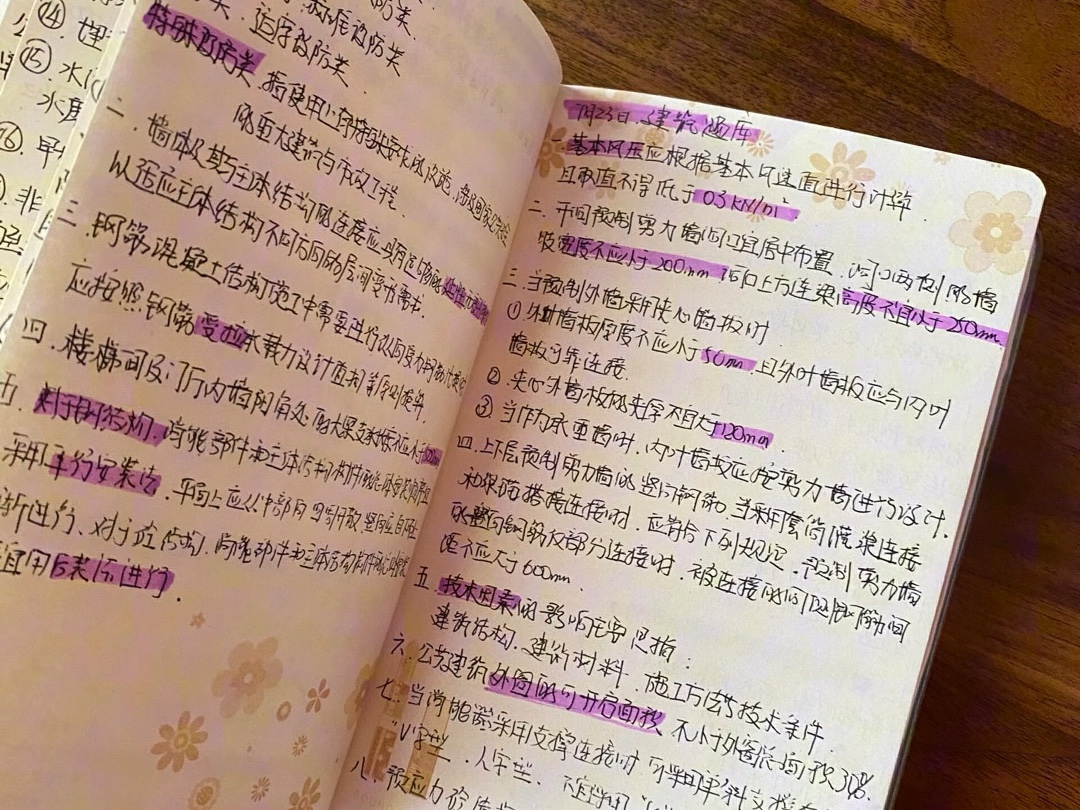 ⑭
⑮ 水
水
⑯
非
防类
适度设防类
特殊设防类 指使用上有特殊要求的设施,
的重大建筑与市政工程.
二、墙体及其与主体结构的连接应具有足够的
以适应主体结构不同方向的层间变形需求.
三、钢筋混凝土结构施工中需要进行
应按照钢筋受拉承载力设计值相等原则换算.
四、楼梯间及门厅内墙阳角处的大梁支承长度不应小于500mm
五、对于刚结构,消能部件和主体结构构件的总体安装
采用平行安装法,平面上应从中部向四周开放,竖向应自下而
渐进行、对于砼结构,消能部件和主体结构构件的总体安装
宜用后装法进行.
7月23日 建筑题库
一、基本风压应根据基本风速值进行计算.
且取值不得低于0.3kN/m²
二、开洞预制剪力墙洞口宜居中布置,洞口两侧的墙
肢宽度不应小于200mm,洞口上方连梁高度不宜小于250mm.
三、当预制外墙采用夹心墙板时
① 外叶墙板厚度不应小于50mm,且外叶墙板应与内叶
墙板可靠连接.
②、夹心外墙板的夹层厚不宜大于120mm
③ 当作为承重墙时,内叶墙板应按剪力墙进行设计.
四、上下层预制剪力墙的竖向钢筋,当采用套筒灌浆连接
和浆锚搭接连接时,应符合下列规定,预制剪力墙
竖向钢筋仅部分连接时,被连接的同侧钢筋间
距不应大于600mm.
五、技术因素的影响主要是指:
建筑结构、建筑材料、施工方法等技术条件
六、公共建筑外窗的可开启面积 不小于外窗总面积30%.
七、当消能器采用支撑连接时,可采用单斜支撑
"V"字型、人字型、不宜采用"
八、预应力